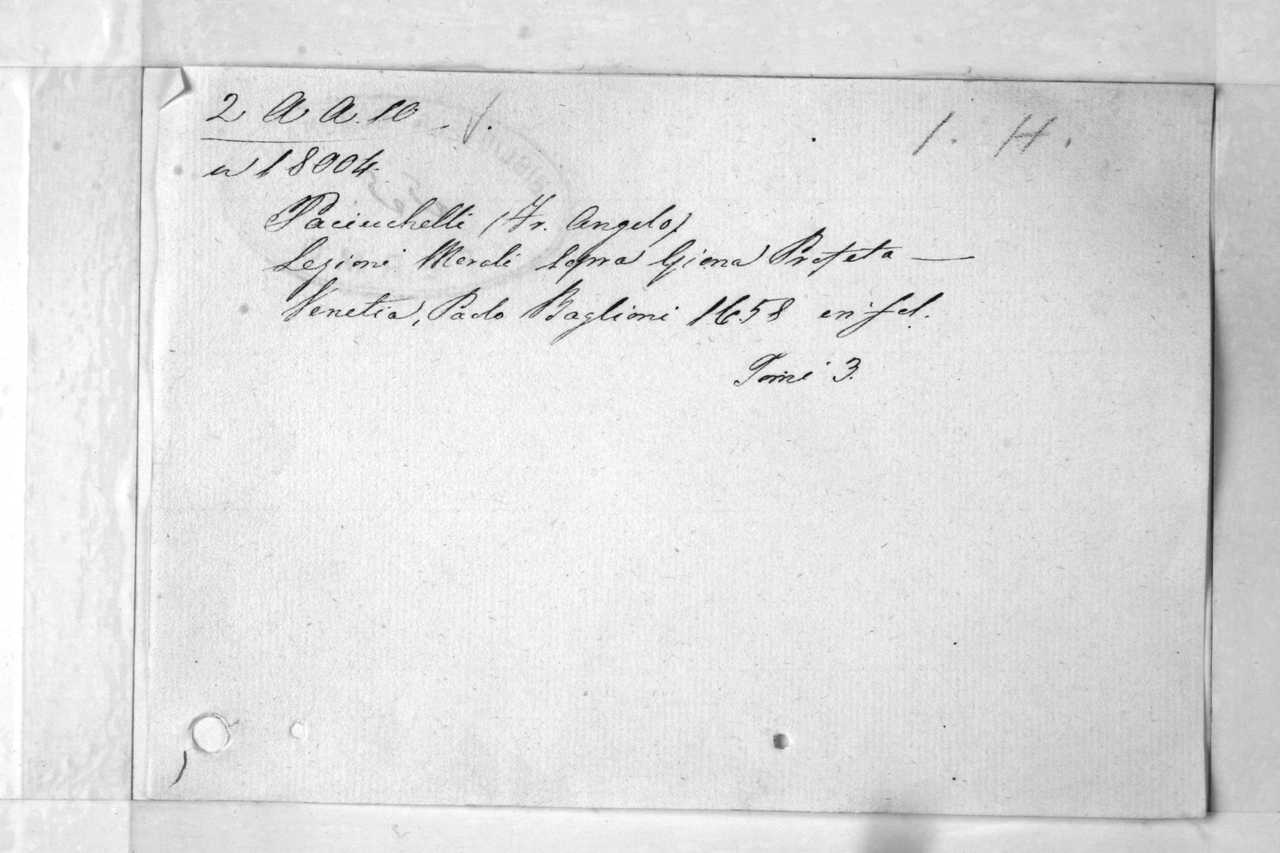 2 A A. 10
1. H.
n 18004.
Paciuchelli (Fr. Angelo)
Lezioni Morali sopra Giona Profeta —
Venetia, Paolo Baglioni 1658 in fol.
Tomi 3.